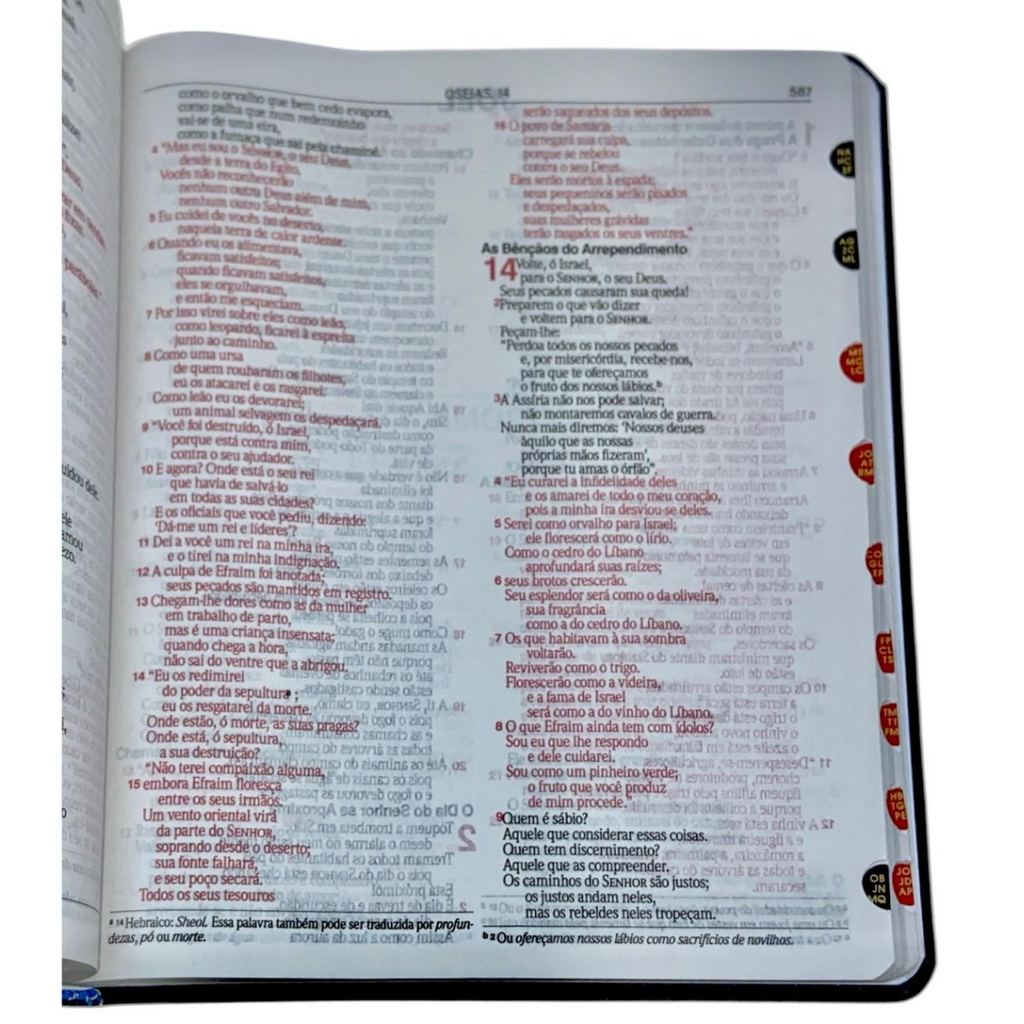 OSEIAS, 14
587
como o orvalho que bem cedo evapora,
como palha que num redemoinho
vai-se de uma eira,
como a fumaça que sai pela chaminé.
4 "Mas eu sou o SENHOR, o seu Deus,
desde a terra do Egito.
Vocês não reconhecerão
nenhum outro Deus além de mim,
nenhum outro Salvador.
5 Eu cuidei de vocês no deserto,
naquela terra de calor ardente.
6 Quando eu os alimentava,
ficavam satisfeitos;
quando ficavam satisfeitos,
eles se orgulhavam,
e então me esqueciam.
7 Por isso virei sobre eles como leão,
como leopardo, ficarei à espreita
junto ao caminho.
8 Como uma ursa
de quem roubaram os filhotes,
eu os atacarei e os rasgarei.
Como leão eu os devorarei;
um animal selvagem os despedaçará.
9 "Você foi destruído, ó Israel,
porque está contra mim,
contra o seu ajudador.
10 E agora? Onde está o seu rei
que havia de salvá-lo
em todas as suas cidades?
E os oficiais que você pediu, dizendo:
'Dá-me um rei e líderes'?
11 Dei a você um rei na minha ira,
e o tirei na minha indignação.
12 A culpa de Efraim foi anotada;
seus pecados são mantidos em registro.
13 Chegam-lhe dores como as da mulher
em trabalho de parto,
mas é uma criança insensata;
quando chega a hora,
não sai do ventre que a abrigou.
14 "Eu os redimirei
do poder da sepulturaᵃ;
eu os resgatarei da morte.
Onde estão, ó morte, as suas pragas?
Onde está, ó sepultura,
a sua destruição?
"Não terei compaixão alguma,
15 embora Efraim floresça
entre os seus irmãos.
Um vento oriental virá
da parte do SENHOR,
soprando desde o deserto;
sua fonte falhará,
e seu poço secará.
Todos os seus tesouros
ᵃ 14 Hebraico: Sheol. Essa palavra também pode ser traduzida por profun-
dezas, pó ou morte.
serão saqueados dos seus depósitos.
16 O povo de Samaria
carregará sua culpa,
porque se rebelou
contra o seu Deus.
Eles serão mortos à espada;
seus pequeninos serão pisados
e despedaçados,
suas mulheres grávidas
terão rasgados os seus ventres."
As Bênçãos do Arrependimento
14 Volte, ó Israel,
para o SENHOR, o seu Deus.
Seus pecados causaram sua queda!
2 Preparem o que vão dizer
e voltem para o SENHOR.
Peçam-lhe:
"Perdoa todos os nossos pecados
e, por misericórdia, recebe-nos,
para que te ofereçamos
o fruto dos nossos lábios.ᵇ
3 A Assíria não nos pode salvar;
não montaremos cavalos de guerra.
Nunca mais diremos: 'Nossos deuses
àquilo que as nossas
próprias mãos fizeram',
porque tu amas o órfão".
4 "Eu curarei a infidelidade deles
e os amarei de todo o meu coração,
pois a minha ira desviou-se deles.
5 Serei como orvalho para Israel;
ele florescerá como o lírio.
Como o cedro do Líbano
aprofundará suas raízes;
6 seus brotos crescerão.
Seu esplendor será como o da oliveira,
sua fragrância
como a do cedro do Líbano.
7 Os que habitavam à sua sombra
voltarão.
Reviverão como o trigo.
Florescerão como a videira,
e a fama de Israel
será como a do vinho do Líbano.
8 O que Efraim ainda tem com ídolos?
Sou eu que lhe respondo
e dele cuidarei.
Sou como um pinheiro verde;
o fruto que você produz
de mim procede."
9 Quem é sábio?
Aquele que considerar essas coisas.
Quem tem discernimento?
Aquele que as compreender.
Os caminhos do SENHOR são justos;
os justos andam neles,
mas os rebeldes neles tropeçam.
ᵇ 2 Ou ofereçamos nossos lábios como sacrifícios de novilhos.
NA
HC
SF
AG
ZC
ML
MT
MC
LC
JO
AT
RM
CO
GL
EF
FP
CL
TS
TM
TT
FM
HB
TG
PE
OB
JN
MQ
JO
JD
AP